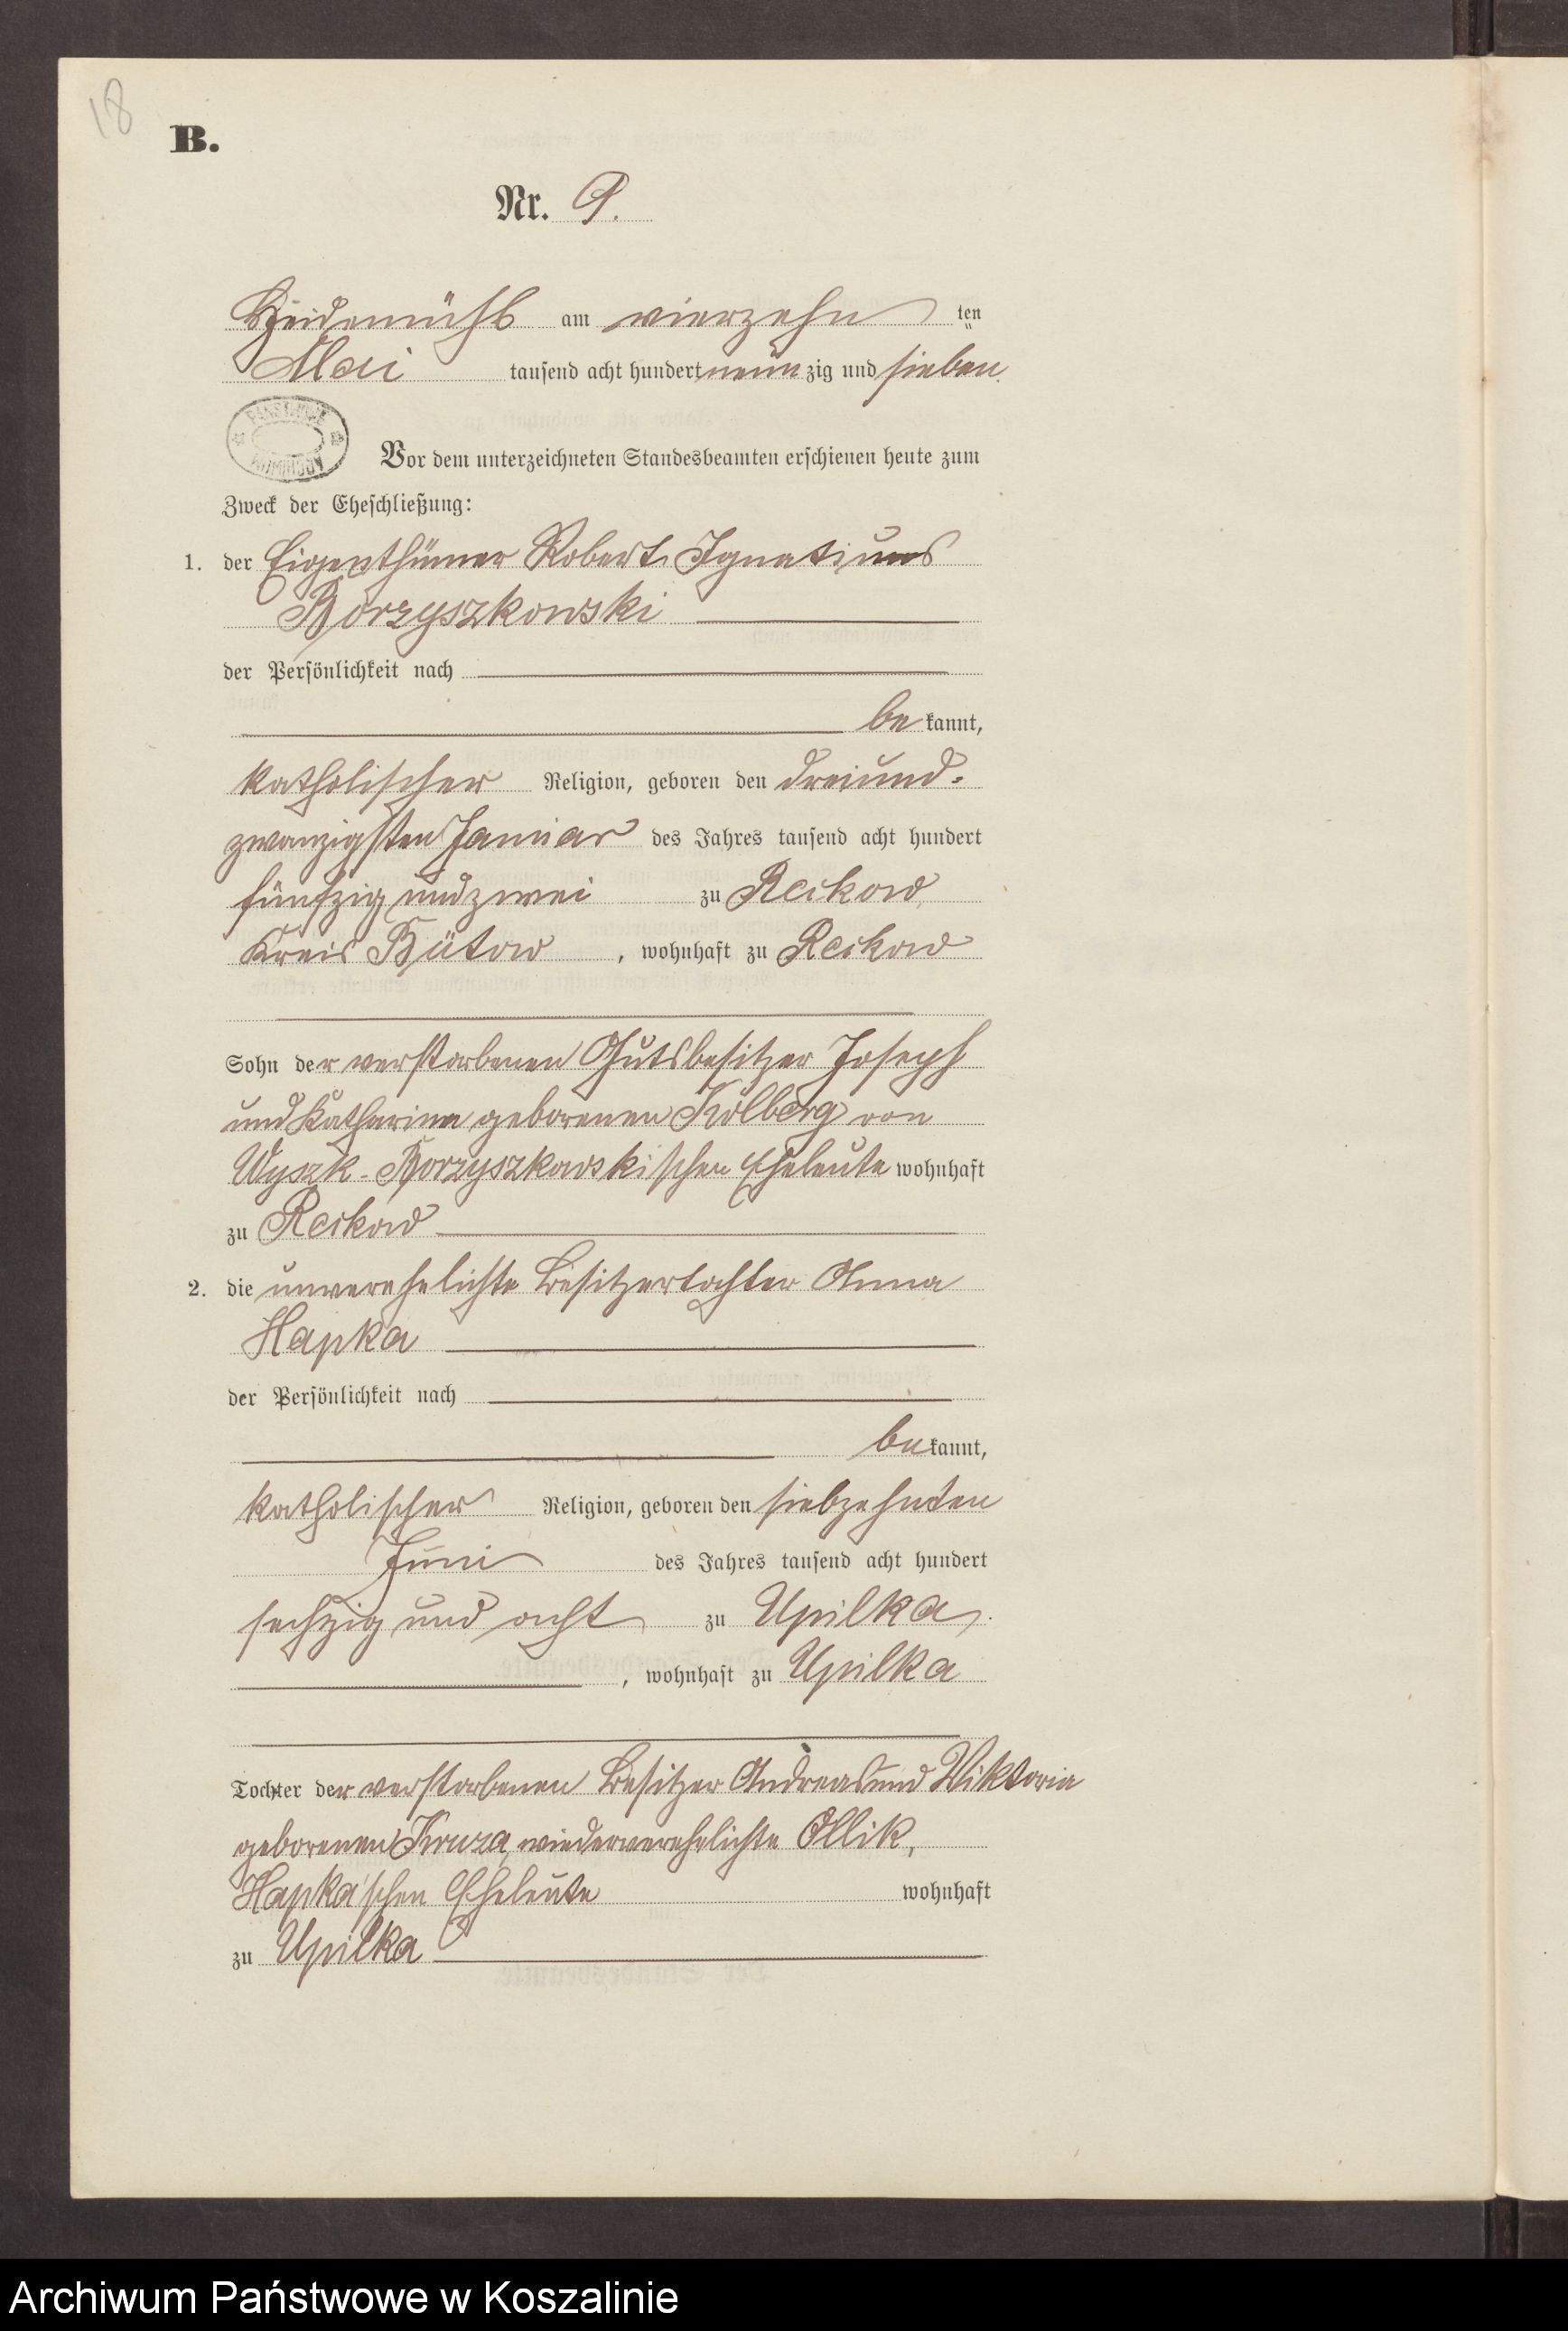 18
B.
Nr. 9.
Heidemühl am vierzehn ten
Mai tausend acht hundert neun zig und sieben.
Vor dem unterzeichneten Standesbeamten erschienen heute zum
Zweck der Eheschließung:
1. der Eigenthümer Robert Ignatius
Borzyszkowski
der Persönlichkeit nach
be kannt,
katholischer Religion, geboren den dreiund-
zwanzigsten Januar des Jahres tausend acht hundert
fünfzig und zwei zu Reckow,
Kreis Bütow, wohnhaft zu Reckow
Sohn der verstorbenen Gutsbesitzer Joseph
und Katharina geborenen Kolberg von
Wyszk-Borzyszkowskischen Eheleute wohnhaft
zu Reckow
2. die unverehelichte Besitzertochter Anna
Hapka
der Persönlichkeit nach
be kannt,
katholischer Religion, geboren den siebzehnten
Juni des Jahres tausend acht hundert
sechzig und acht zu Upilka,
, wohnhaft zu Upilka
Tochter der verstorbenen Besitzer Andreas und Wiktoria
geborenen Kruza, wiederverehelichte Ollik,
Hapka'schen Eheleute wohnhaft
zu Upilka
Archiwum Państwowe w Koszalinie